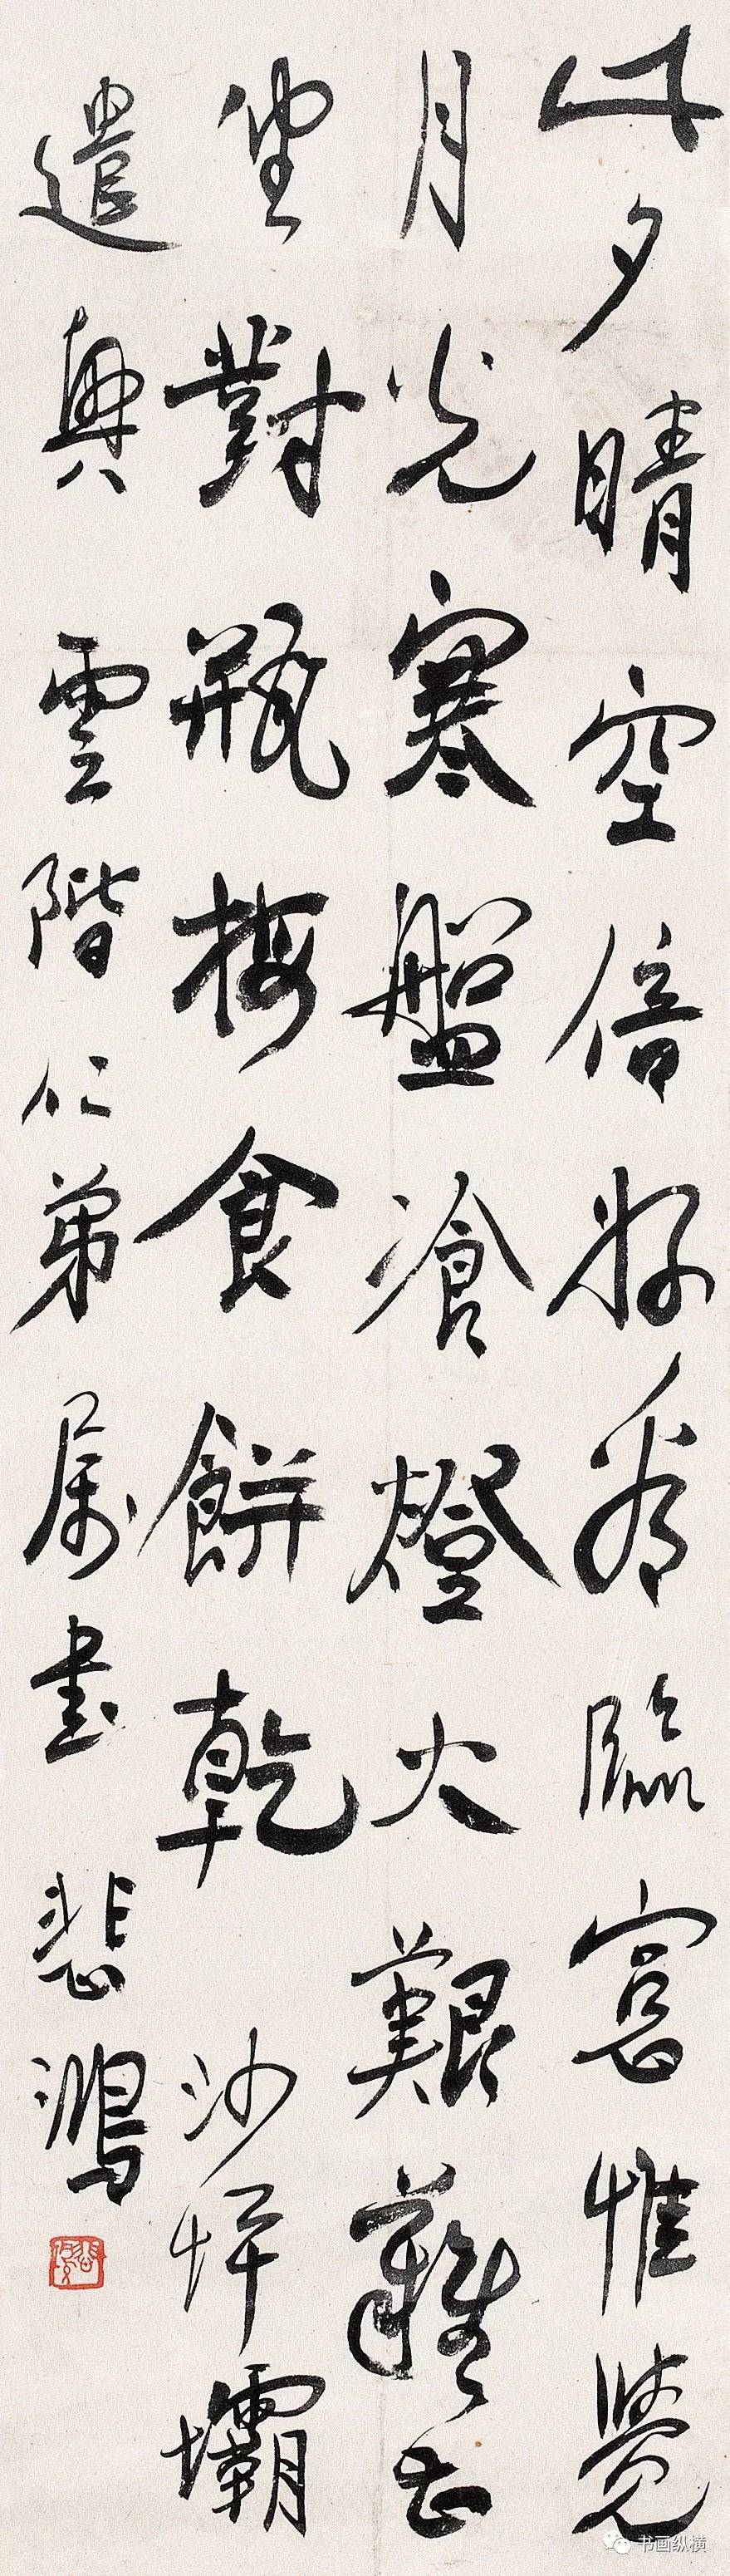 此夕晴空倍好看臨窗惟覺
月光寒盤飡燈火艱難甚
坐對瓶梅食餅乾 沙坪壩
遣興 雲階仁弟屬書 悲鴻
书画纵横